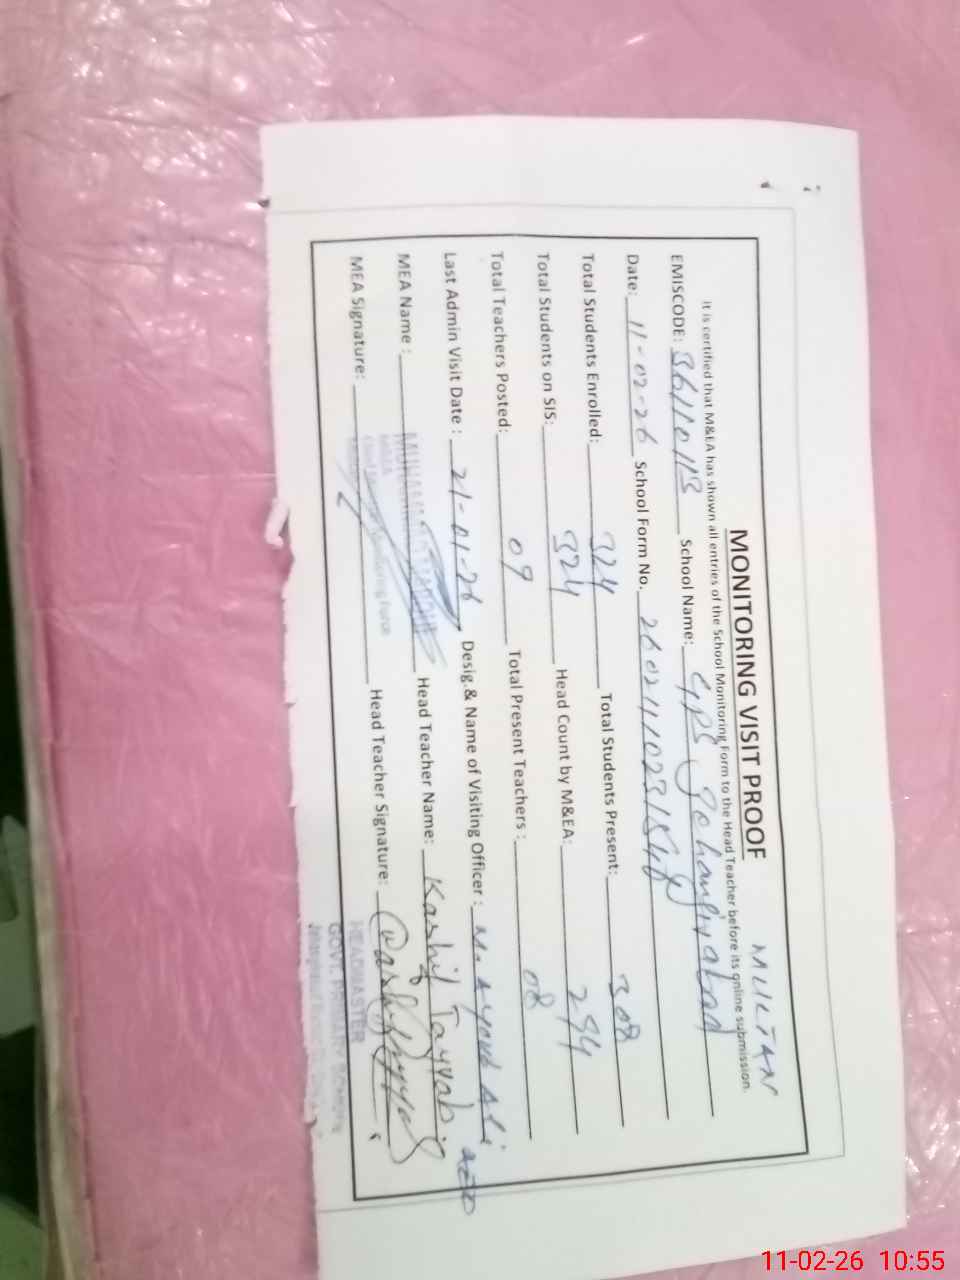 MONITORING VISIT PROOF MULTAN
It is certified that M&EA has shown all entries of the School Monitoring Form to the Head Teacher before its online submission.
EMISCODE: 36110113 School Name: GPS Jahangirabad
Date: 11-02-26 School Form No.
Total Students Enrolled: 324 Total Students Present: 308
Total Students on SIS: 324 Head Count by M&EA: 294
Total Teachers Posted: 09 Total Present Teachers : 08
Last Admin Visit Date : 21-01-26 Desig.& Name of Visiting Officer : Ali AEO
MEA Name : Head Teacher Name: Kashif Tayyab
MEA Signature: Head Teacher Signature:
HEADMASTER
GOVT. PRIMARY
11-02-26 10:55